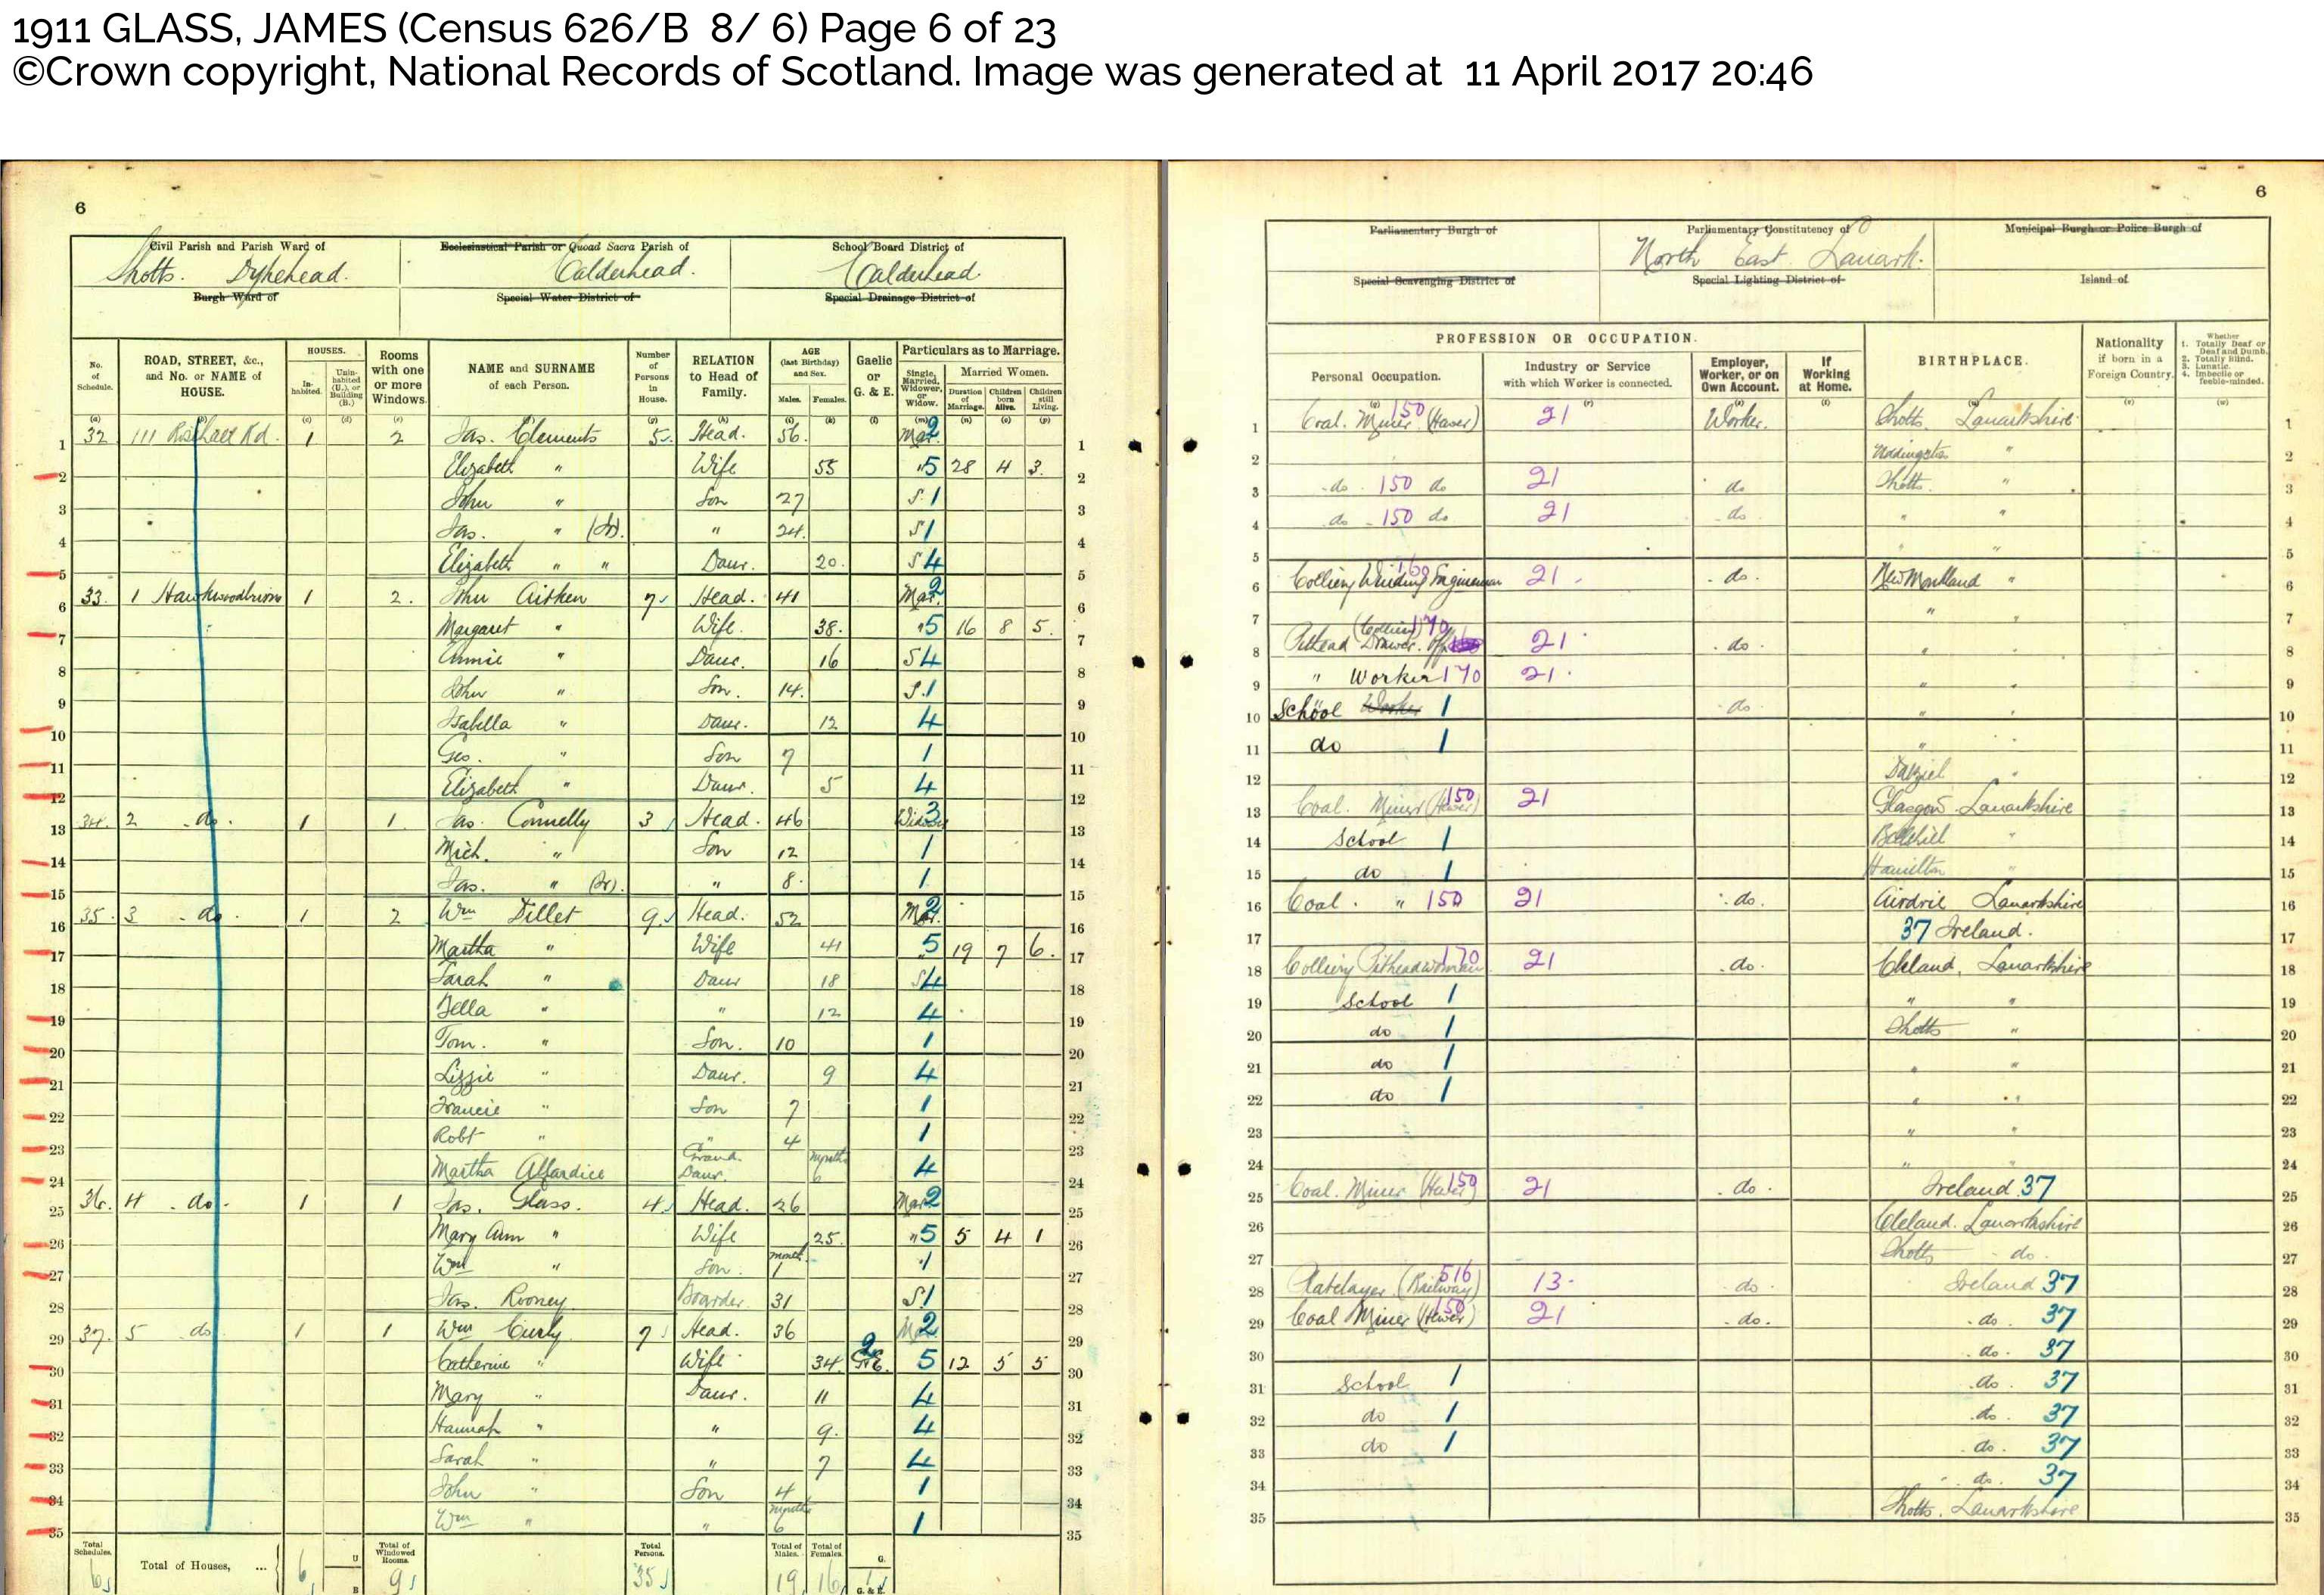 1911 GLASS, JAMES (Census 626/B 8/ 6) Page 6 of 23
©Crown copyright, National Records of Scotland. Image was generated at 11 April 2017 20:46
6
6
Civil Parish and Parish Ward of
Shotts. Dykehead.
Ecclesiastical Parish or Quoad Sacra Parish of
Calderhead.
School Board District of
Calderhead.
Burgh Ward of
Special Water District of
Special Drainage District of
Parliamentary Burgh of
Parliamentary Constitutency of
North East Lanark.
Municipal Burgh or Police Burgh of
Special Scavenging District of
Special Lighting District of
Island of
No. of Schedule.
ROAD, STREET, &c., and No. or NAME of HOUSE.
HOUSES.
In-habited.
Unin-habited (U.), or Building (B.)
Rooms with one or more Windows.
NAME and SURNAME of each Person.
Number of Persons in House.
RELATION to Head of Family.
AGE (last Birthday) and Sex.
Males. Females.
Gaelic or G. & E.
Particulars as to Marriage.
Single, Married, Widower, or Widow.
Married Women.
Duration of Marriage. Children born Alive. Children still Living.
PROFESSION OR OCCUPATION.
Personal Occupation.
Industry or Service with which Worker is connected.
Employer, Worker, or on Own Account.
If Working at Home.
BIRTHPLACE.
Nationality if born in a Foreign Country.
Whether
1. Totally Deaf or Deaf and Dumb.
2. Totally Blind.
3. Lunatic.
4. Imbecile or feeble-minded.
1 32 111 Rd. 1 2 Jas. Clements 5 Head. 56 Mar. 2 Coal. Miner 150 21 Worker. Shotts Lanarkshire
2 Elizabeth " Wife 55 " 5 28 4 3. Uddingston "
3 John " Son 27 S. 1 do 150 do 21 do Shotts. "
4 Jas. " (Jr). " 24. S 1 do 150 do 21 do " "
5 Elizabeth " " Daur. 20. S 4 " "
6 33. 1 Hawkwoodburn 1 2. John Aitken 7 Head. 41 Mar. 2 Colliery Winding Engineman 160 21 do. New Monkland "
7 Margaret " Wife. 38. " 5 16 8 5. " "
8 Annie " Daur. 16 S 4 Pithead Drawer. off (Colliery) 170 21 do. " "
9 John " Son. 14. S. 1 " Worker 170 21. " "
10 Isabella " Daur. 12 4 School Worker 1 do. " "
11 Geo. " Son 7 1 do 1 " "
12 Elizabeth " Daur. 5 4 Dalziel "
13 34. 2 do. 1 1. Jas. Connelly 3 Head. 46 Widower 3 Coal. Miner (Hewer) 150 21 Glasgow Lanarkshire
14 Mich. " Son 12 1 School 1 Bellshill "
15 Jas. " (Jr). " 8. 1 do 1 Hamilton "
16 35. 3 do. 1 2 Wm Dillet 9 Head. 52 Mar. 2 Coal. " 150 21 do. Airdrie Lanarkshire
17 Martha " Wife 41 5 19 7 6. 37 Ireland.
18 Sarah " Daur 18 S 4 Colliery Pitheadwoman 170 21 do. Cleland, Lanarkshire
19 Bella " " 12 4 School 1 " "
20 Tom. " Son. 10 1 do 1 Shotts "
21 Lizzie " Daur. 9 4 do 1 " "
22 Francie " Son 7 1 do 1 " "
23 Robt " " 4 1 " "
24 Martha Allardice Grand Daur. months 6 4 " "
25 36. 4 do. 1 1 Jas. Glass. 4 Head. 26 Mar 2 Coal. Miner (Hewer) 150 21 do. Ireland 37
26 Mary Ann " Wife 25. " 5 5 4 1 Cleland. Lanarkshire
27 Wm " Son. month 1 1 Shotts do.
28 Jas. Rooney Boarder. 31 S 1 Platelayer (Railway) 516 13. do. Ireland 37
29 37. 5 do. 1 1 Wm Curly 7 Head. 36 Mar 2 Coal Miner (Hewer) 150 21 do. do. 37
30 Catherine " Wife 34. G&E. 2 5 12 5 5 do. 37
31 Mary " Daur. 11 4 School 1 do. 37
32 Hannah " " 9. 4 do 1 do. 37
33 Sarah " " 7 4 do 1 do. 37
34 John " Son 4 1 do. 37
35 Wm " " months 6 1 Shotts. Lanarkshire
Total Schedules. 6
Total of Houses, ... 6 U B
Total of Windowed Rooms. 9
Total Persons. 35
Total of Males. 19
Total of Females. 16
G.
G. & E. 1